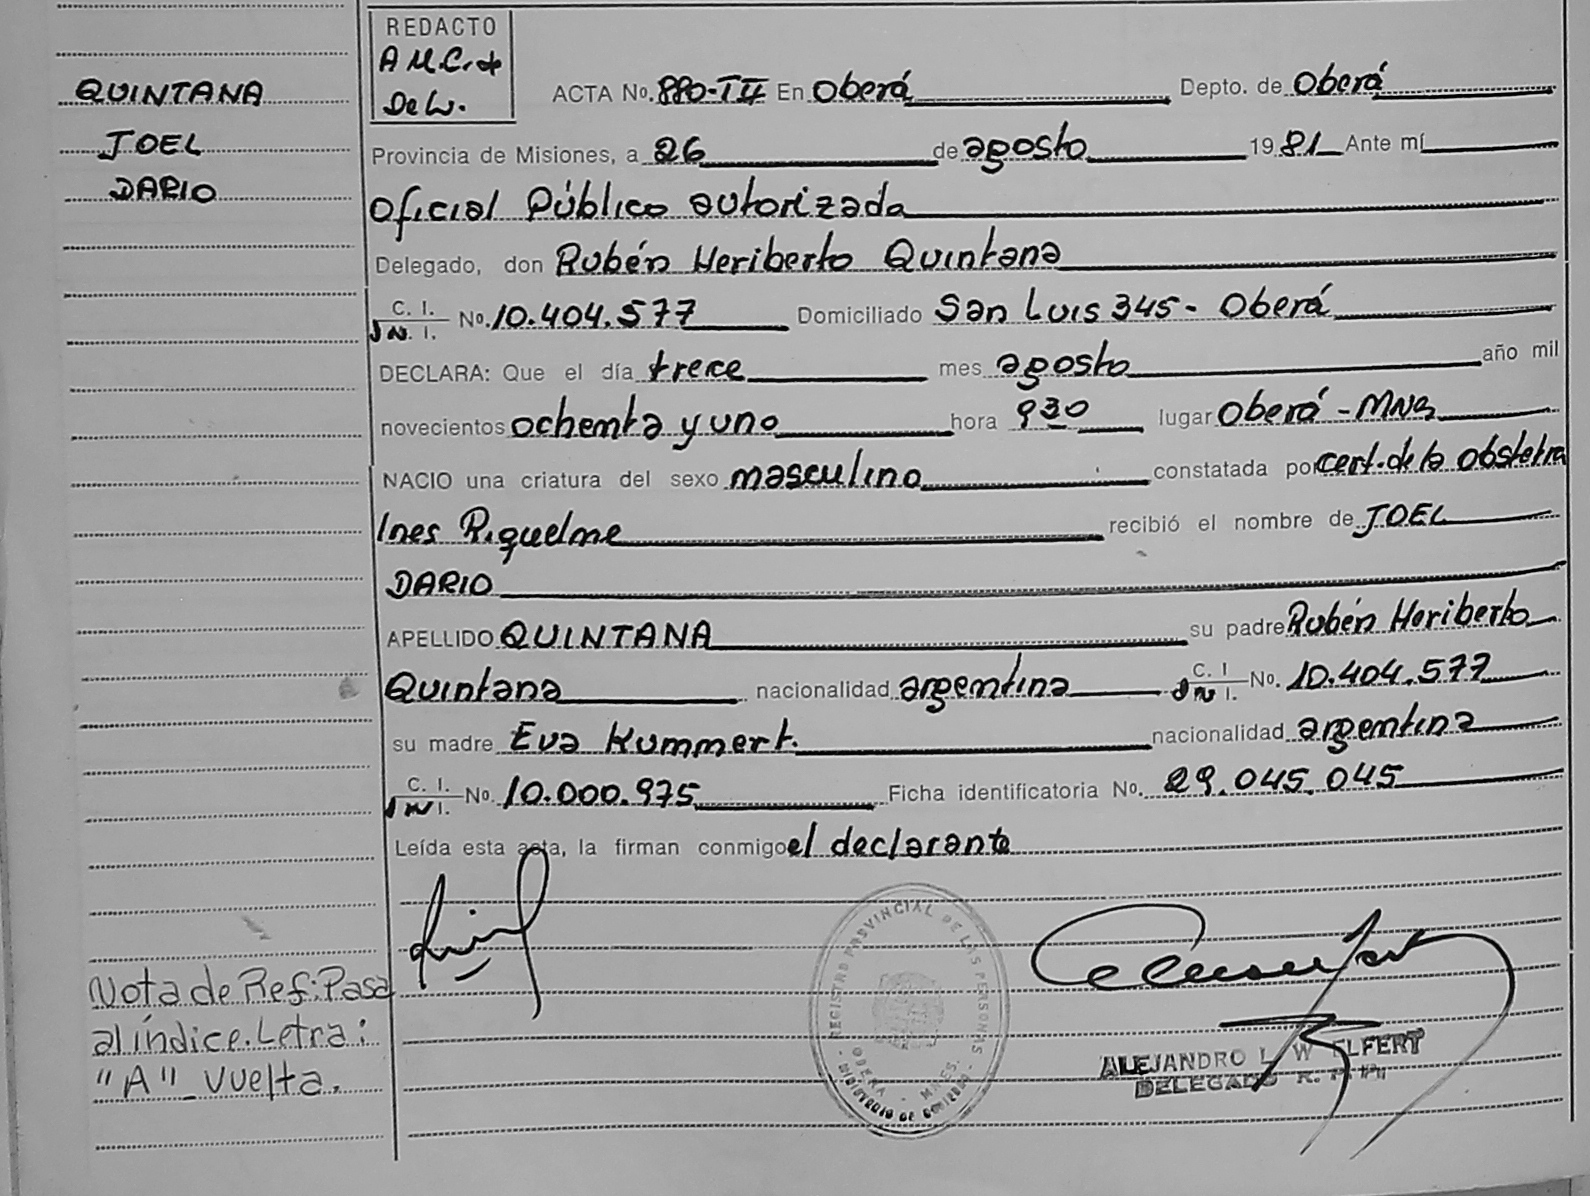 QUINTANA
JOEL
DARIO
REDACTO
A M.C. de
De W.
ACTA No. 880-TII En Oberá Depto. de Oberá
Provincia de Misiones, a 26 de agosto 1981 Ante mí
Oficial Público autorizada
Delegado, don Rubén Heriberto Quintana
C. I.
D N. I. No. 10.404.577 Domiciliado San Luis 345 - Oberá
DECLARA: Que el día trece mes agosto año mil
novecientos ochenta y uno hora 930 lugar Oberá - MNES
NACIO una criatura del sexo masculino constatada por cert. de la obstetra
Ines Riquelme recibió el nombre de JOEL
DARIO
APELLIDO QUINTANA su padre Rubén Heriberto
Quintana nacionalidad argentina C. I. D N I. No. 10.404.577
su madre Eva Kummert. nacionalidad argentina
C. I. D N I. No. 10.000.975 Ficha identificatoria No. 29.045.045
Leída esta acta, la firman conmigo el declarante
Nota de Ref: Pasa
al índice. Letra:
"A" - Vuelta.
REGISTRO PROVINCIAL DE LAS PERSONAS
OBERA - MNES.
MINISTERIO DE GOBIERNO
ALEJANDRO L. WELFERT
DELEGADO R. P. P.